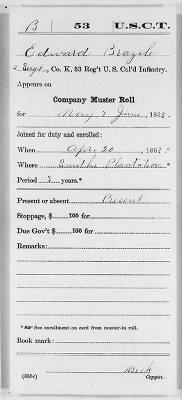 B 53 U.S.C.T.
Edward Brazile
Sergt., Co. K, 53 Reg't U. S. Col'd Infantry.
Appears on
Company Muster Roll
for May & June, 1863.
Joined for duty and enrolled:
When Apr. 20, 1863.
Where Smiths Plantation *
Period 3 years.*
Present or absent Present
Stoppage, $ 100 for
Due Gov't $ 100 for
Remarks:
* See enrollment on card from muster-in roll.
Book mark:
(358c) Copyist.